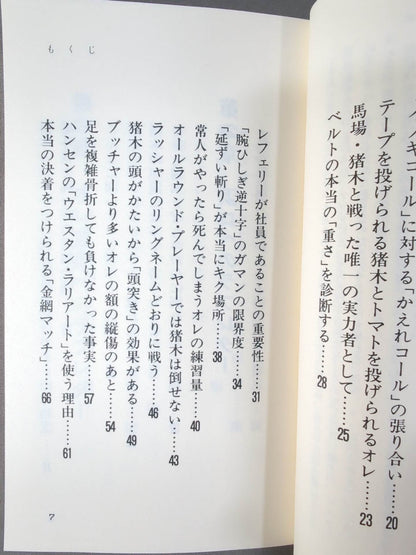 イキコール」に対する「かえれコール」の張り合い……20
テープを投げられる猪木とトマトを投げられるオレ……23
馬場・猪木と戦った唯一の実力者として……25
ベルトの本当の「重さ」を診断する……28
もくじ
レフェリーが社員であることの重要性……31
「腕ひしぎ逆十字」のガマンの限界度……34
「延ずい斬り」が本当にキク場所……38
常人がやったら死んでしまうオレの練習量……40
オールラウンド・プレーヤーでは猪木は倒せない……43
ラッシャーのリングネームどおりに戦う……46
猪木の頭がかたいから「頭突き」の効果がある……49
ブッチャーより多いオレの額の縦傷のあと……54
足を複雑骨折しても負けなかった事実……57
ハンセンの「ウエスタン・ラリアート」を使う理由……61
本当の決着をつけられる「金網マッチ」……66
7